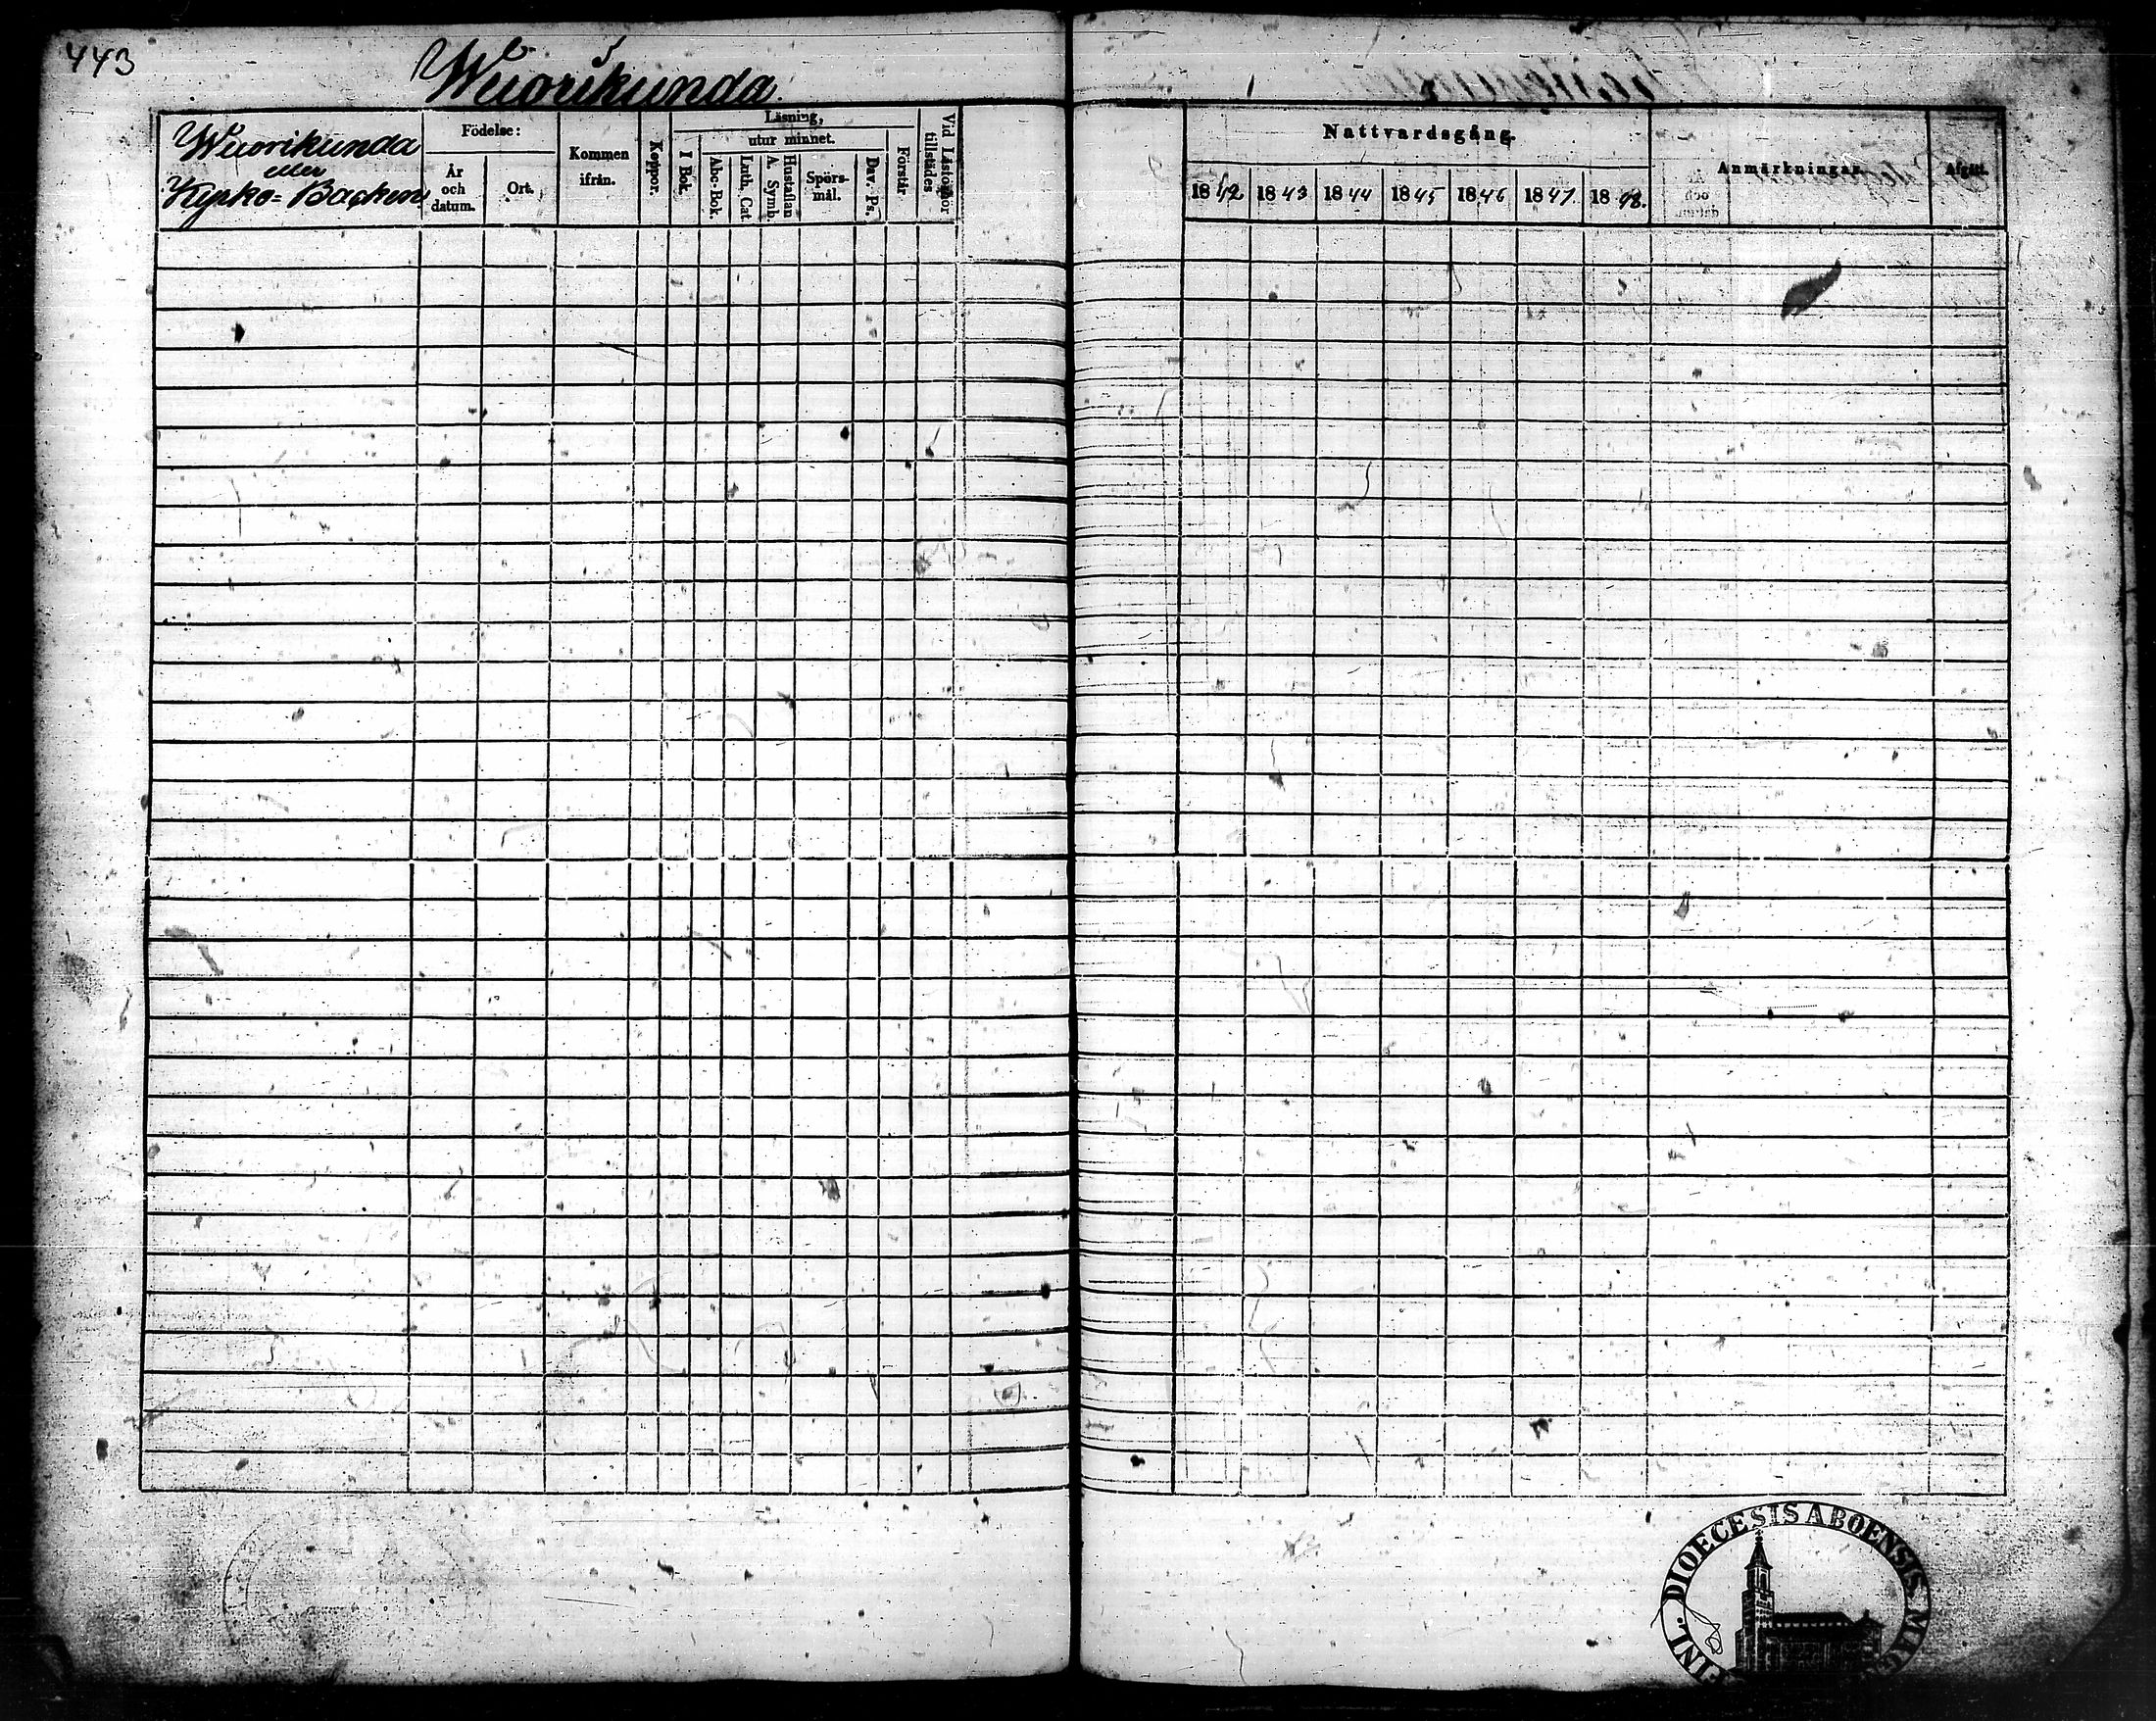 443
Wuorikunda.
Wuorikunda
eller
Kyrko=Backen
Födelse:
År
och
datum.
Ort.
Kommen
ifrån.
Koppor.
Läsning,
utur minnet.
I Bok.
Abc-Bok.
Luth. Cat.
A. Symb.
Hustaflan
Spörs-
mål.
Dav. Ps.
Förstår.
Vid Läseförhör
tillstädes
Nattvardsgång.
1842
1843
1844
1845
1846
1847.
1848.
Anmärkningar.
Afgått.
FINL. DIOECESIS ABOENSIS MAG